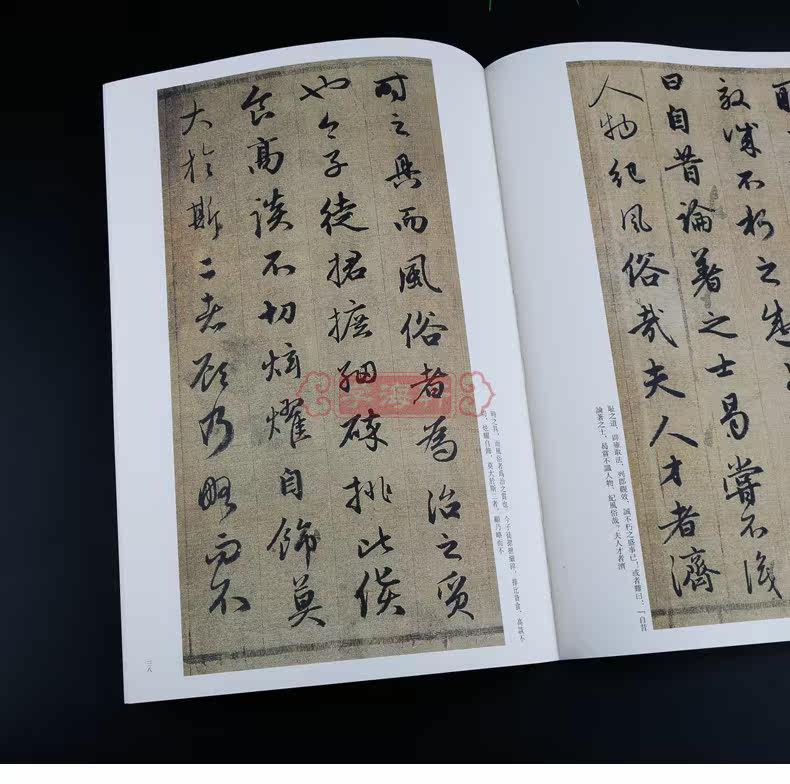 效誠不朽之盛
曰自昔論著之士曷嘗不識
人物紀風俗哉夫人才者濟
耻之道,即確取法,列郡觀效,誠不朽之盛事已!或者難曰:「自昔
論著之士,曷嘗不識人物,紀風俗哉?夫人才者濟
時之具而風俗者為治之質
也今子徒捃摭細碎排比餱
食高談不切炫耀自飾莫
大於斯二者顧乃略而不
時之具,而風俗者為治之質也。今子徒捃摭細碎,排比餱食,高談不
切,炫耀自飾,莫大於斯二者,顧乃略而不
三八